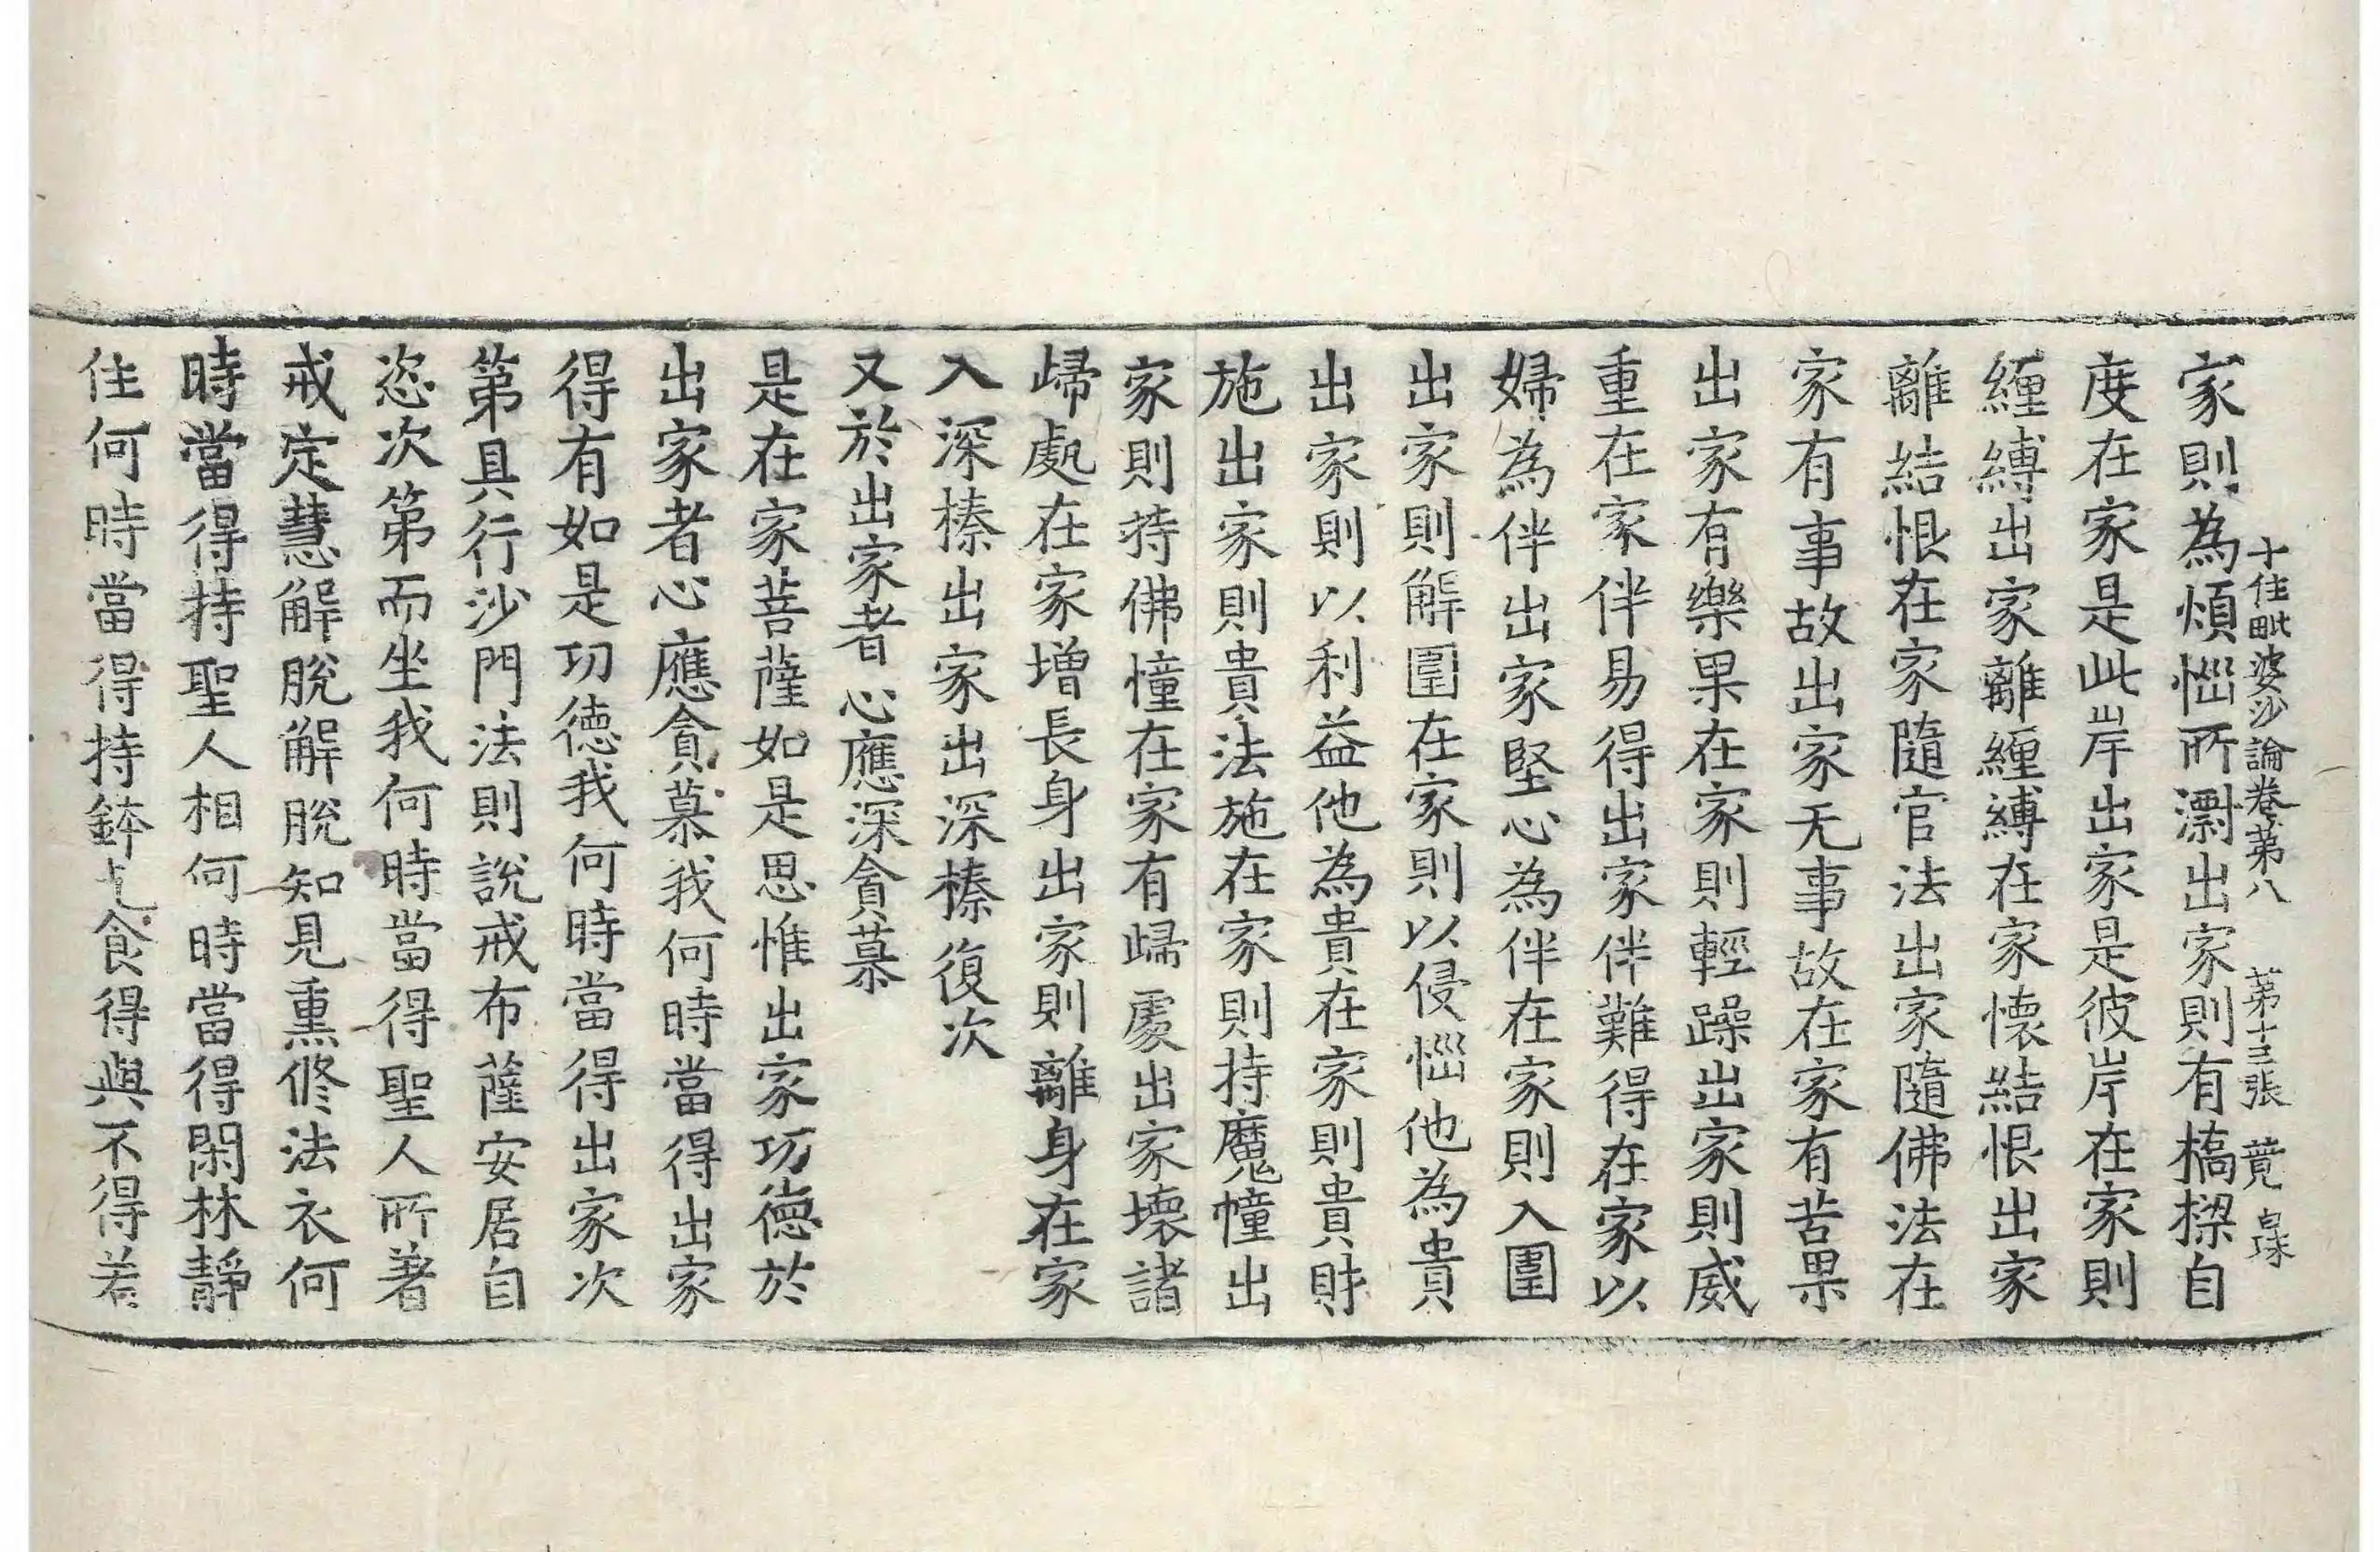 十住毗婆沙論卷第八 第十三張 蕡
家則為煩惱所漂出家則有橋樑自
度在家是此岸出家是彼岸在家則
纏縛出家離纏縛在家懷結恨出家
離結恨在家隨官法出家隨佛法在
家有事故出家无事故在家有苦果
出家有樂果在家則輕躁出家則威
重在家伴易得出家伴難得在家以
婦為伴出家堅心為伴在家則入圍
出家則解圍在家則以侵惱他為貴
出家則以利益他為貴在家則貴財
施出家則貴法施在家則持魔幢出
家則持佛幢在家有歸處出家壞諸
歸處在家增長身出家則離身在家
入深榛出家出深榛復次
又於出家者心應深貪慕
是在家菩薩如是思惟出家功德於
出家者心應貪慕我何時當得出家
得有如是功德我何時當得出家次
第具行沙門法則說戒布薩安居自
恣次第而坐我何時當得聖人所著
戒定慧解脫解脫知見熏修法衣何
時當得持聖人相何時當得閑林靜
住何時當得持鉢乞食得與不得若